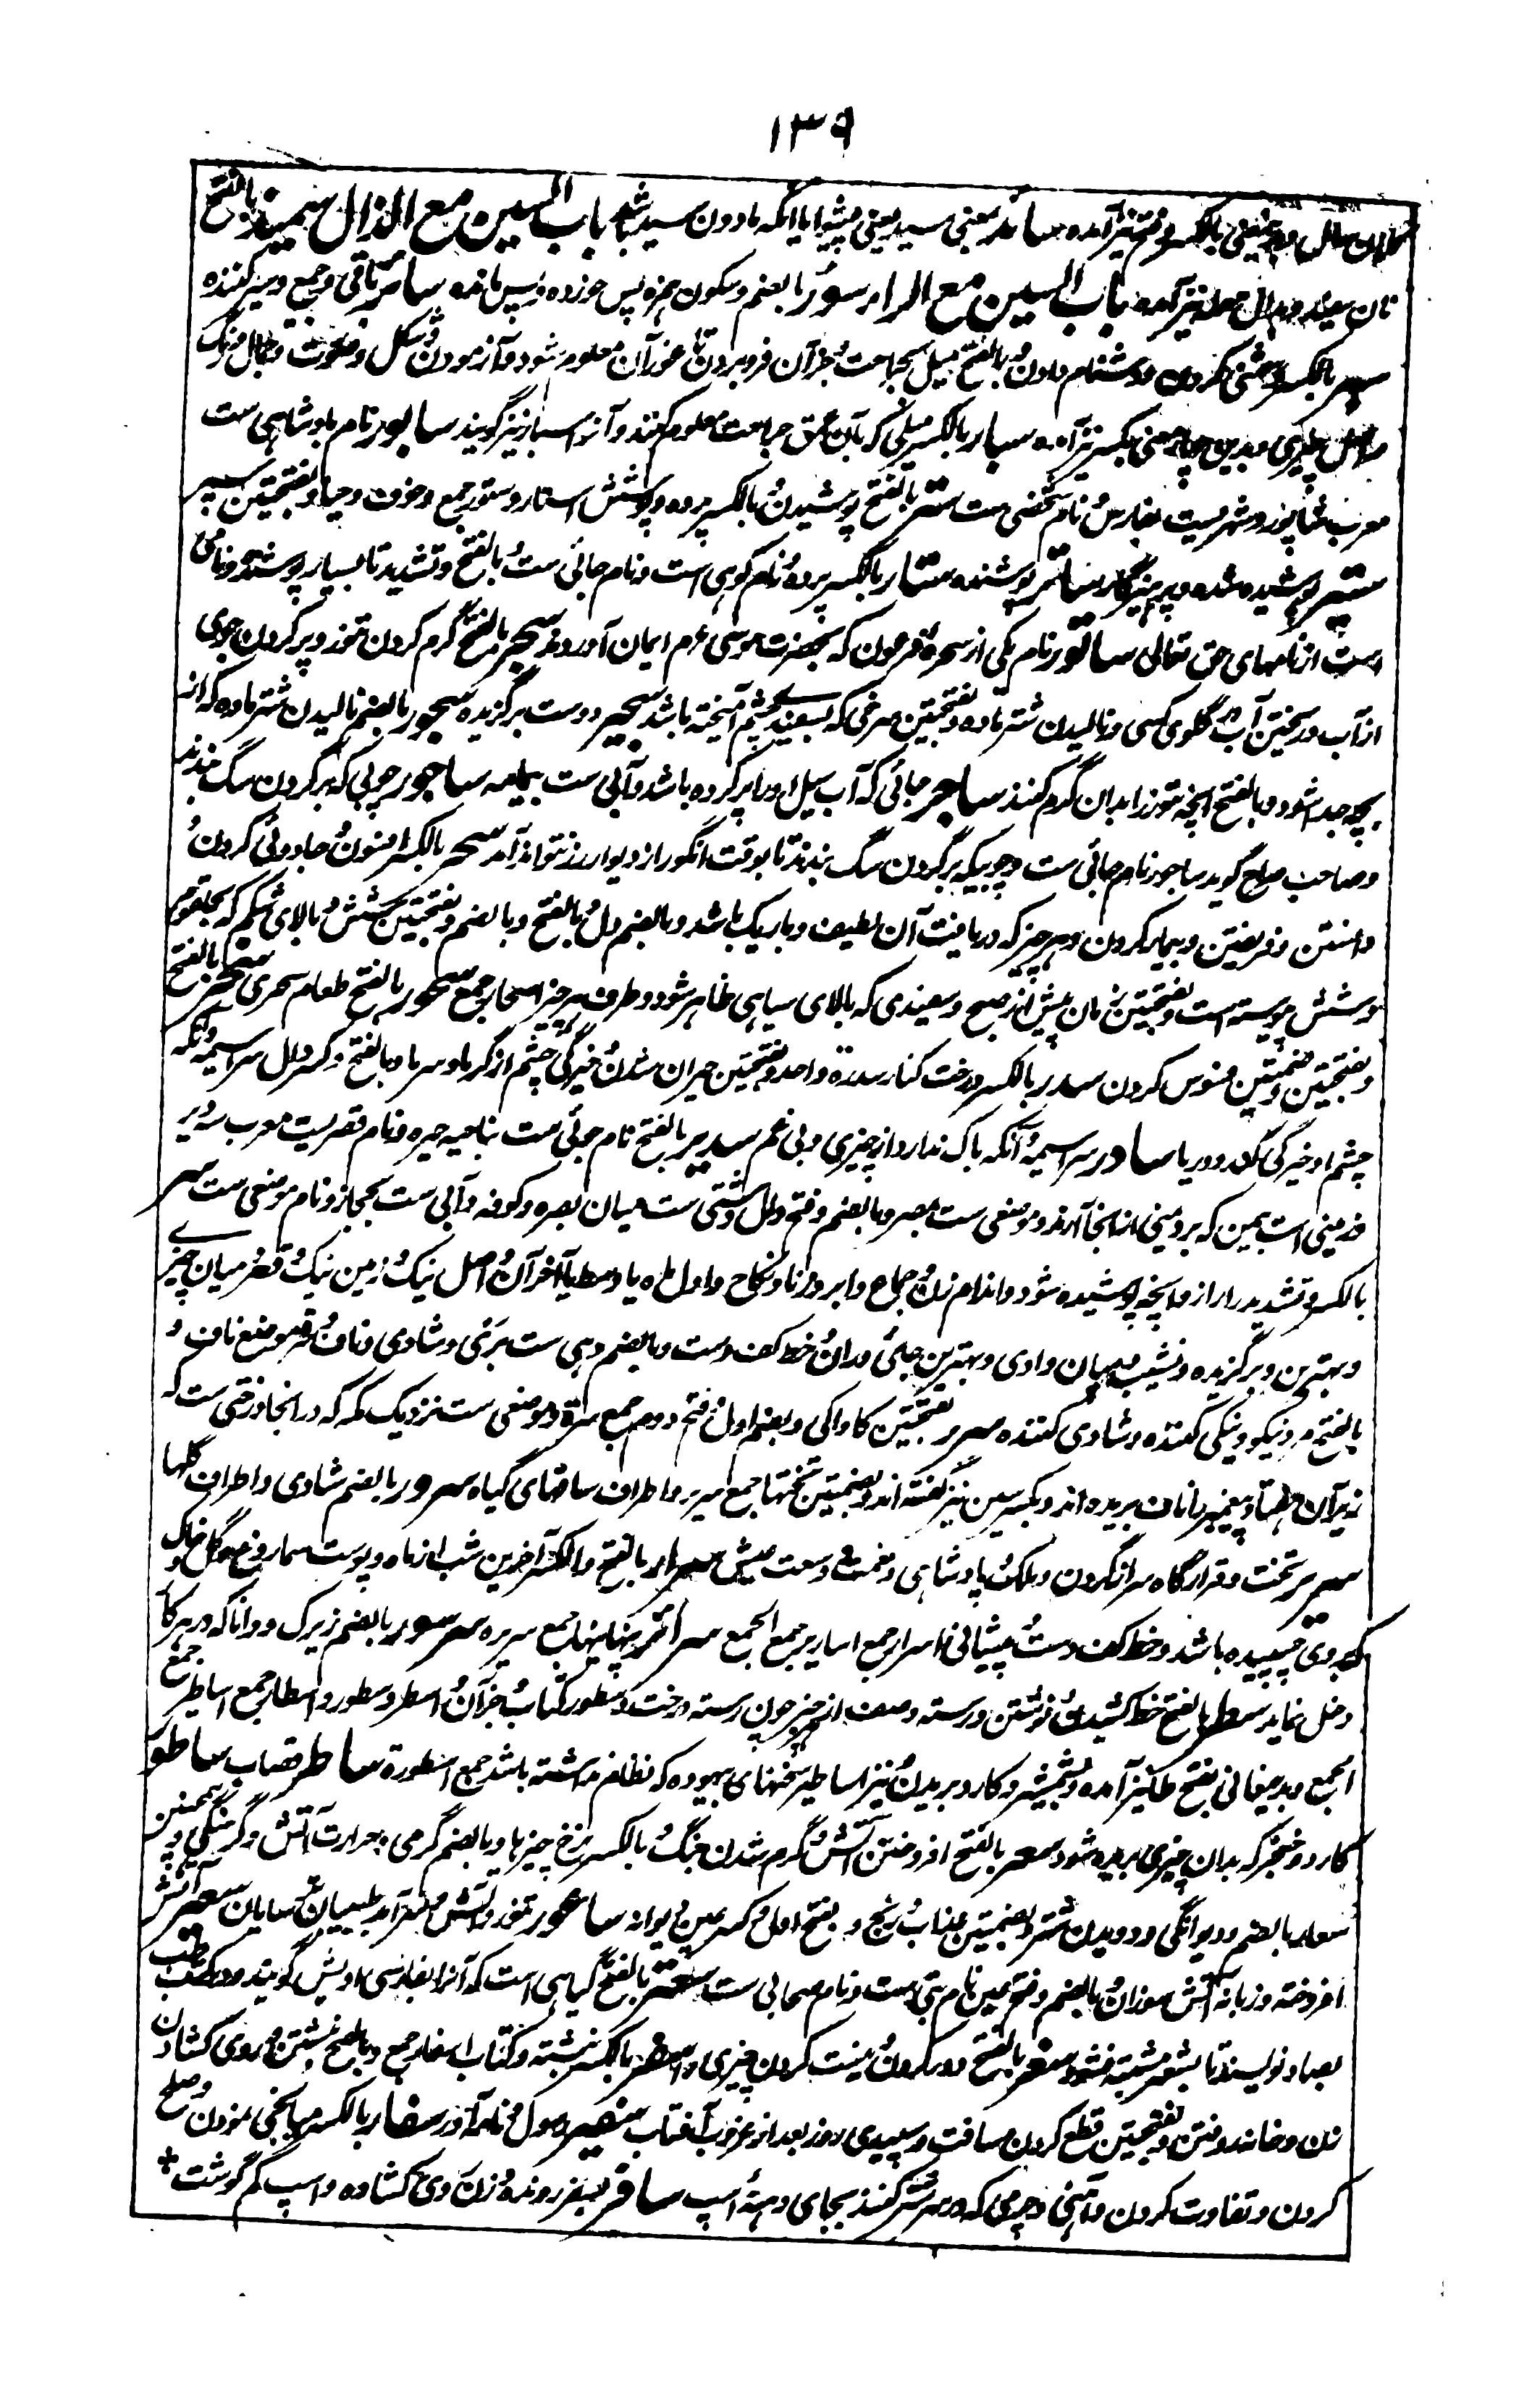 ۱۳۹
بالکسر و فتح نیز آمده سائد بمعنی سید یعنی پیشوا یا آنکه مادون سید باشد باب السین مع الذال سمیذ بالفتح
نان سفید و بدال مهمله نیز آمده باب السین مع الراء سؤر بالضم و سکون همزه پس خورده و پس مانده سائر باقی و جمیع و سیر کننده
سبر بالکسر دشمنی کردن و دشنام دادن و بالفتح میل بجراحت و جز آن فرو بردن تا غور آن معلوم شود و آزمودن و شکل و صورت و جمال و رنگ
و اصل چیزی و بدین چهار معنی بکسر نیز آمده سبار بالکسر میلی که بآن عمق جراحت معلوم کنند و آنرا سبار نیز گویند سابور نام پادشاهی ست
معرب شاپور و شهریست بفارس و نام شخصی ست ستر بالفتح پوشیدن و بالکسر پرده و پوشش استار و ستور جمع و خوف و حیا و بفتحتین سپر
ستیر پوشیده شده و پرهیزگار ساتر پوشنده ستار بالکسر پرده و نام کوهی است و نام جائی ست و بالفتح و تشدید تا بسیار پوشنده و نامی
است از نامهای حق تعالی ساتور نام یکی از سحره فرعون که بحضرت موسی ع م ایمان آوردند سجر بالفتح گرم کردن تنور و پر کردن جوی
از آب و ریختن آب در گلوی کسی و نالیدن شتر ماده و بفتحتین سرخی که بسفیدی چشم آمیخته باشد سجیر دوست برگزیده سجور بالضم نالیدن شتر ماده که از
بچه جدا شود و بالفتح آنچه تنور را بدان گرم کنند ساجر جائی که آب سیل او را پر کرده باشد و آبی ست بیمامه ساجور چوبی که بر گردن سگ بندند
و صاحب صراح گوید ساجور نام جائی ست و چوبیکه بر گردن سگ بندند تا بوقت انگور از دیوار رز نتواند آمد سحر بالکسر افسون و جادوئی کردن و
دانستن و فریفتن و بیمار کردن و هر چیز که دریافت آن لطیف و باریک باشد و بالضم دل و بالفتح و بالضم و بفتحتین شش و بالای شکم که بحلقوم
و شش پیوسته است و بفتحتین زمان پیش از صبح و سفیدی که بالای سیاهی ظاهر شود و طرف هر چیز اسحار جمع سحور بالفتح طعام سحری سخر بالفتح
و بفتحتین و ضمتین فسوس کردن سدر بالکسر درخت کنار سدرة واحد و بفتحتین حیران شدن و خیرگی چشم از گرما و سرما و بالفتح و کسر دال سراسیمه و آنکه
چشم او خیرگی کند و دریا سادر سراسیمه و آنکه باک ندارد از چیزی و بی غم سدیر بالفتح نام جوئی ست بناحیه حیره و نام قصریست معرب سه دیر
و زمینی است بیمن که برد یمنی از آنجا آرند و موضعی ست بمصر و بالضم و فتح دال دشتی ست میان بصره و کوفه و آبی ست بحجاز و نام موضعی ست سر
بالکسر و تشدید را راز و آنچه پوشیده شود و اندام زن و جماع و ابروز زنا و نکاح و اول ماه یا وسط یا آخر آن و اصل نیک و زمین نیک و قعر و میان چیزی
و بهترین و برگزیده و نشیب میان وادی و بهترین جائی در آن و خط کف دست و بالضم دهی ست برَی و شادی و ناف و قره موضع ناف و
بالفتح مرد نیکو و نیکی کننده و شادی کننده سرر بفتحتین کاواکی و بضم اول و فتح دوم جمع سرة و موضعی ست نزدیک مکه که در آنجا درختی ست که
زیر آن هفتاد پیغمبر را ناف بریده اند و بکسر سین نیز گفته اند و بضمتین تختها جمع سریر و اطراف ساقهای گیاه سرور بالضم شادی و اطراف گلها
سریر تخت و قرارگاه سر از گردن و ملک و پادشاهی و نعمت و وسعت عیش سرار بالفتح و الکسر آخرین شب از ماه و پوست سماروغ و گل و خاک
که بروی چسپیده باشد و خط کف دست و پیشانی اسرار جمع اساریر جمع الجمع سرائر پنهانیها جمع سریره سرسور بالضم زیرک و دانا که در هر کار
دخل نماید سطر بالفتح خط کشیدن و نوشتن و رسته و صف از هر چیز چون رسته درخت و سطور کتاب و جز آن و اسطر و سطور و اسطار جمع اساطیر جمع
الجمع و بدین معانی بفتح طا نیز آمده و بشمشیر و کارد بریدن و نیز اساطیر سخنهای بیهوده که نظام نداشته باشد جمع اسطورة ساطر قصاب ساطور
کارد و خنجر که بدان چیزی بریده شود سعر بالفتح افروختن آتش و گرم شدن جنگ و بالکسر نرخ چیزها و بالضم گرمی و حرارت آتش و گرسنگی و همچنین
سعار بالضم و دیوانگی و دویدن شتر و بضمتین عذاب و رنج و بفتح اول و کسر عین دیوانه ساعور تنور و آتش و مقدم طبیبان ترسایان سعیر آتش
افروخته و زبانه آتش سوزان و بالضم و فتح عین نام بتی است و نام صحابی ست سعتر بالفتح گیاهی است که آنرا بفارسی اویشن گویند و در کتب طب
بصاد نویسند تا بشعیر مشتبه نشود سفر بالفتح دور کردن و نیست کردن چیزی و اثر بالکسر نبشته و کتاب اسفار جمع و بالفتح نبشتن و روی کشادن
زن و خانه روفتن و بفتحتین قطع کردن مسافت و سپیدی روز بعد از غروب آفتاب سفیر رسول و نامه آور سفار بالکسر میانجی نمودن و صلح
کردن و تفاوت کردن و آهنی و چرمی که در سر شتر کنند بجای دهنهٔ اسپ سافر بسفر رونده و زن روی کشاده و اسپ کم گوشت *